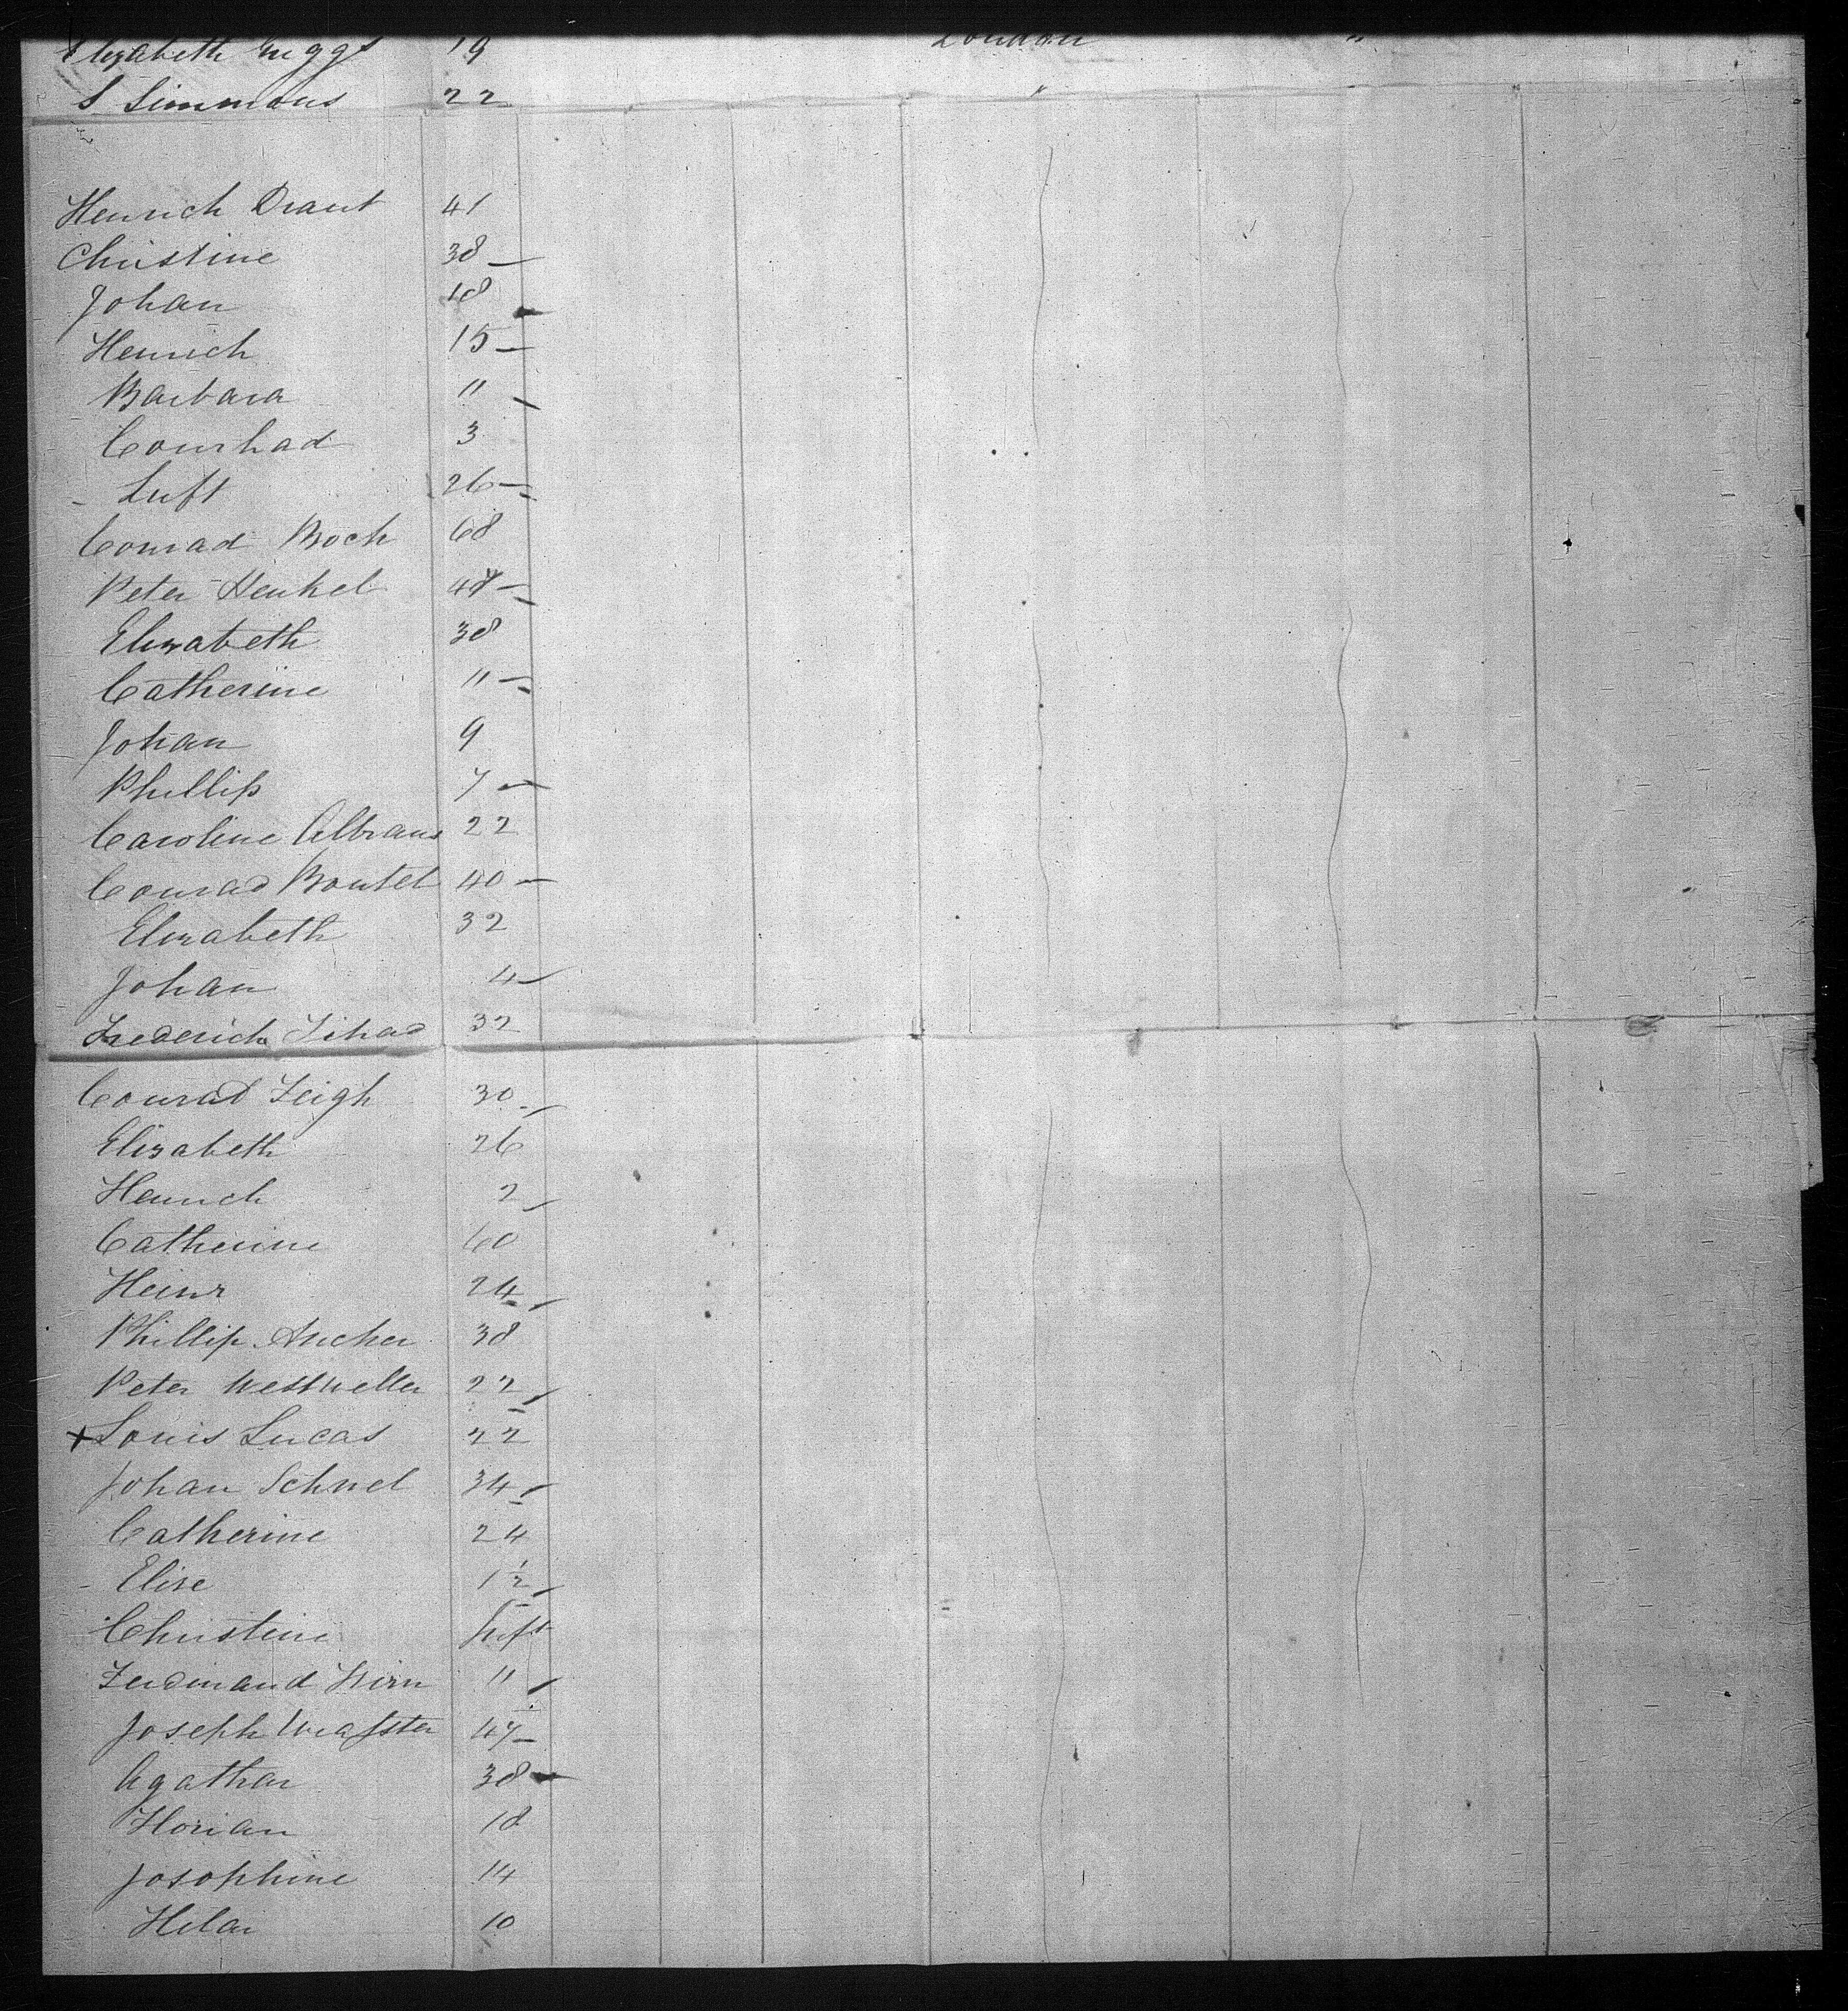 Elizabeth Griggs 19 London "
S Simmons 22 "
Henrich Draut 41
Christine 38
Johan 18
Henrich 15
Barbara 11
Counhad 3
Luft 26
Conrad Boch 68
Peter Henkel 48
Elizabeth 38
Catherine 11
Johan 9
Phillip 7
Caroline Albraus 22
Conrad Boutel 40
Elizabeth 32
Johan 4
Frederich 32
Conrad Feigh 30
Elizabeth 26
Henrich 2
Catherine 60
Heinr 24
Phillip Ancher 38
Peter Westweller 22
x Louis Lucas 22
Johan Schnel 34
Catherine 24
Elise 1½
Christine Inft
Ferdinand 11
Joseph 47
Agathar 38
Florian 18
Josophine 14
Hilar 10